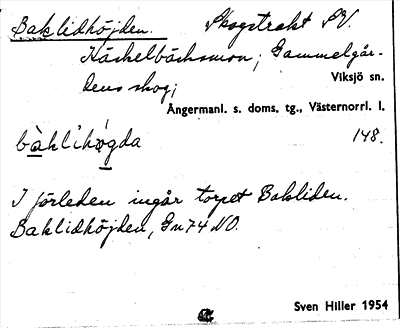 Baklidhöjden. Skogstrakt SV.
Häckelbäcksmon; Gammelgår-
dens skog; Viksjö sn.
Ångermanl. s. doms. tg., Västernorrl. l.
bàkli`hø̀gda 148.
I förleden ingår torpet Bakliden.
Baklidhöjden, Gn74 NO.
Sven Hiller 1954